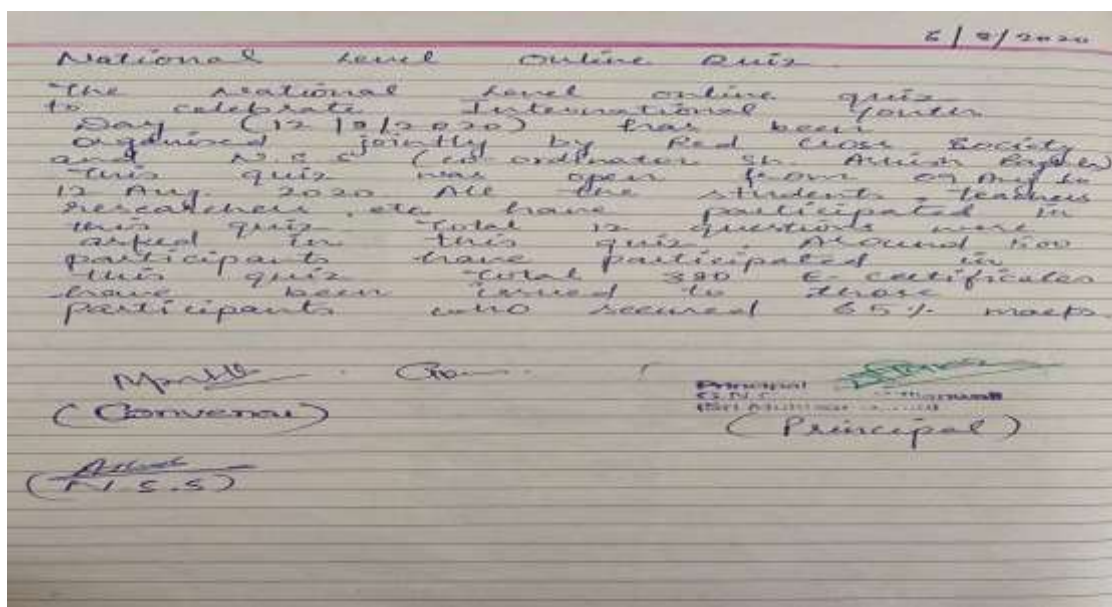 /8/2020
National Level Online Quiz
The National Level online quiz
to celebrate International Youth
Day (12/8/2020) has been
organised jointly by Red Cross Society
and N.S.S (co-ordinator Sh. Ashish
This quiz was open from 09 Aug to
12 Aug. 2020 All the students, teachers
researchers, etc have participated in
this quiz. Total 12 questions were
asked in this quiz. Around 1500
participants have participated in
this quiz Total 380 E-certificates
have been issued to those
participants who secured 65% marks
(Convenor)
Principal
(Principal)
(N.S.S)